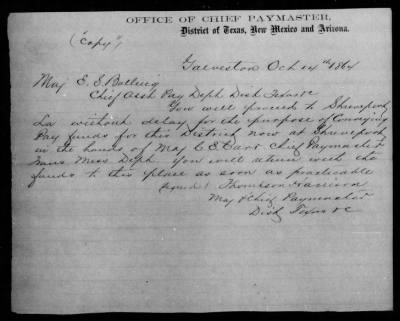 OFFICE OF CHIEF PAYMASTER,
District of Texas, New Mexico and Arizona.
("Copy")
Galveston Oct 14th 1864
Maj E. E.
Chief Asst Pay Dept Dist Texas &c
You will proceed to Shreveport
La without delay for the purpose of Conveying
Pay funds for this District now at Shreveport
in the hands of Maj C E Carr Chief Paymaster
Trans Miss Dept. You will return with the
funds to this place as soon as practicable
(signed) Thompson Harrison
Maj & Chief Paymaster
Dist Texas &c